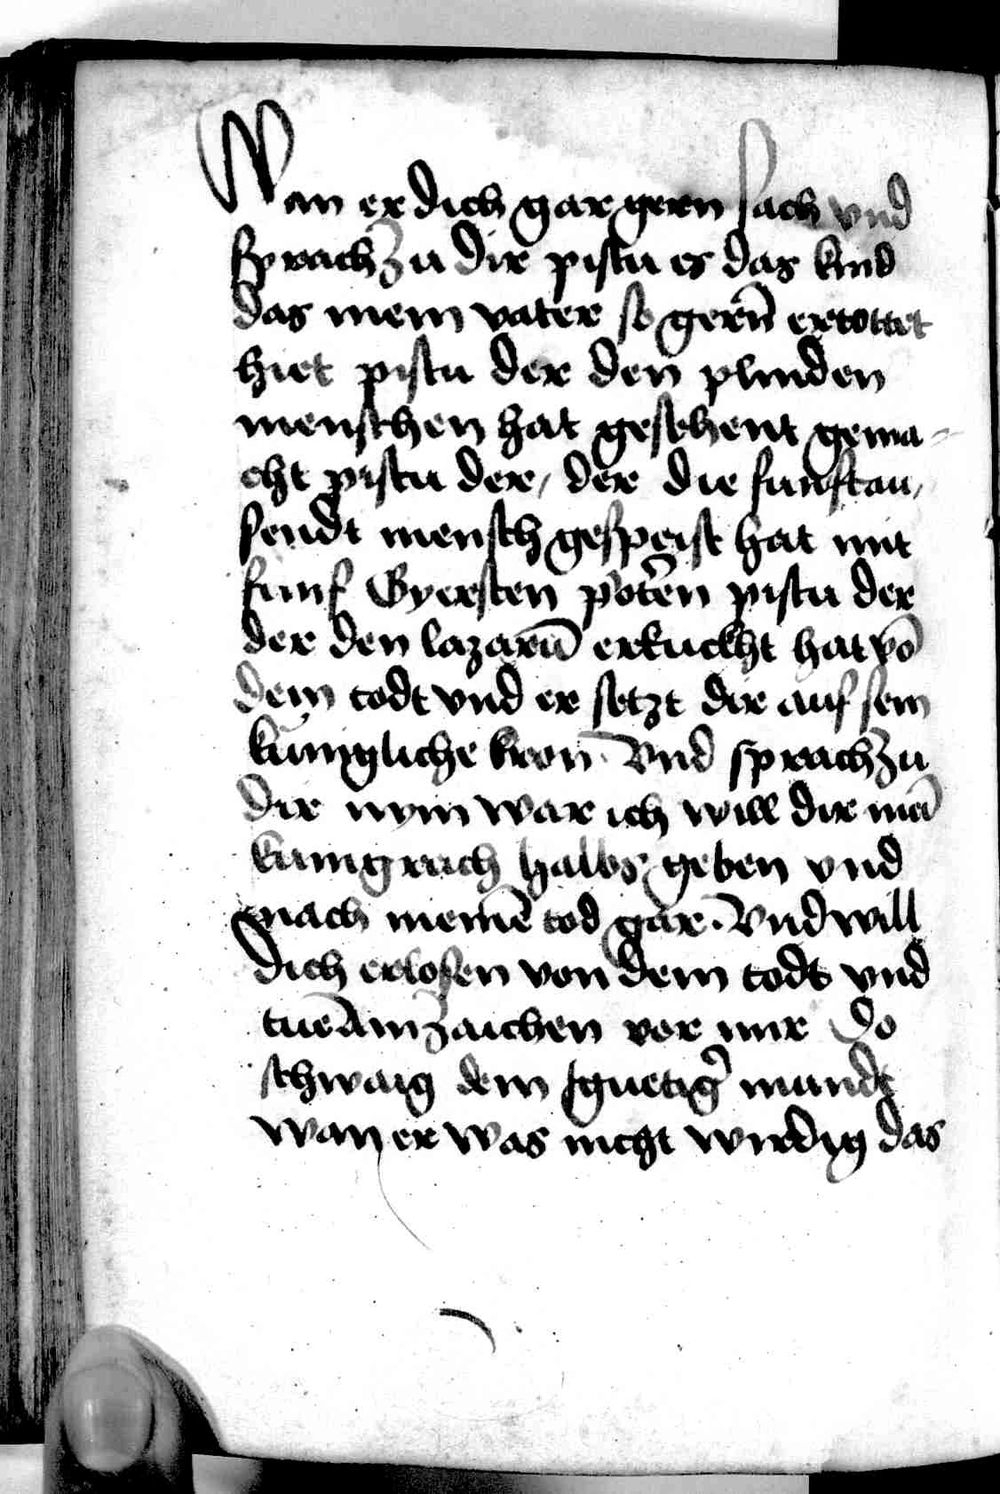 Wan er dich gar gern sach vnd
sprach zu dir pistu es das kind
das mein vater so gerñ ertottet
hiet pistu der den plinden
menschen hat gesehent gema-
cht pistu der, der die funftau,
sendt mensch gespeist hat mit
funf Gyersten poten pistu der
der den lazarū erkuckht hat vō
dem todt vnd er setzt dir auf sein
kunigliche kron. Vnd sprach zu
dir nym war ich will dir mei͞
kunigreich halbs geben vnd
nach meinē tod gar. Vnd will
dich erlosen von dem todt vnd
tue ain zaichen vor mir Do
schwaig dein guetig̉ mundt
wan er was nicht wirdig das